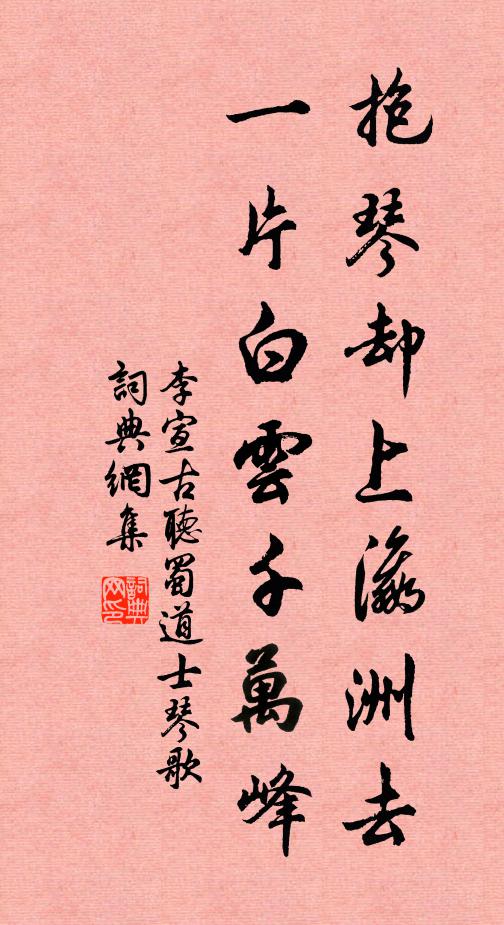 抱琴却上瀛洲去
一片白雲千萬峰
李宣古聽蜀道士琴歌
詞典網集
詞典網印